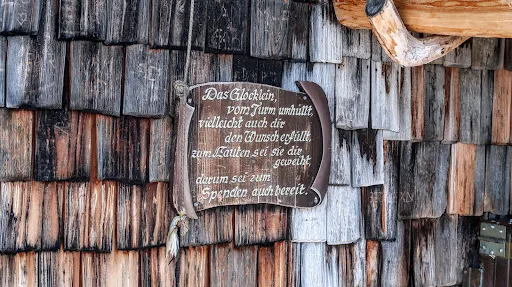 Das Glöcklein,
vom Turm umhüllt,
vielleicht auch dir
den Wunsch erfüllt,
zum Läuten sei sie dir
geweiht,
darum sei zum
Spenden auch bereit.